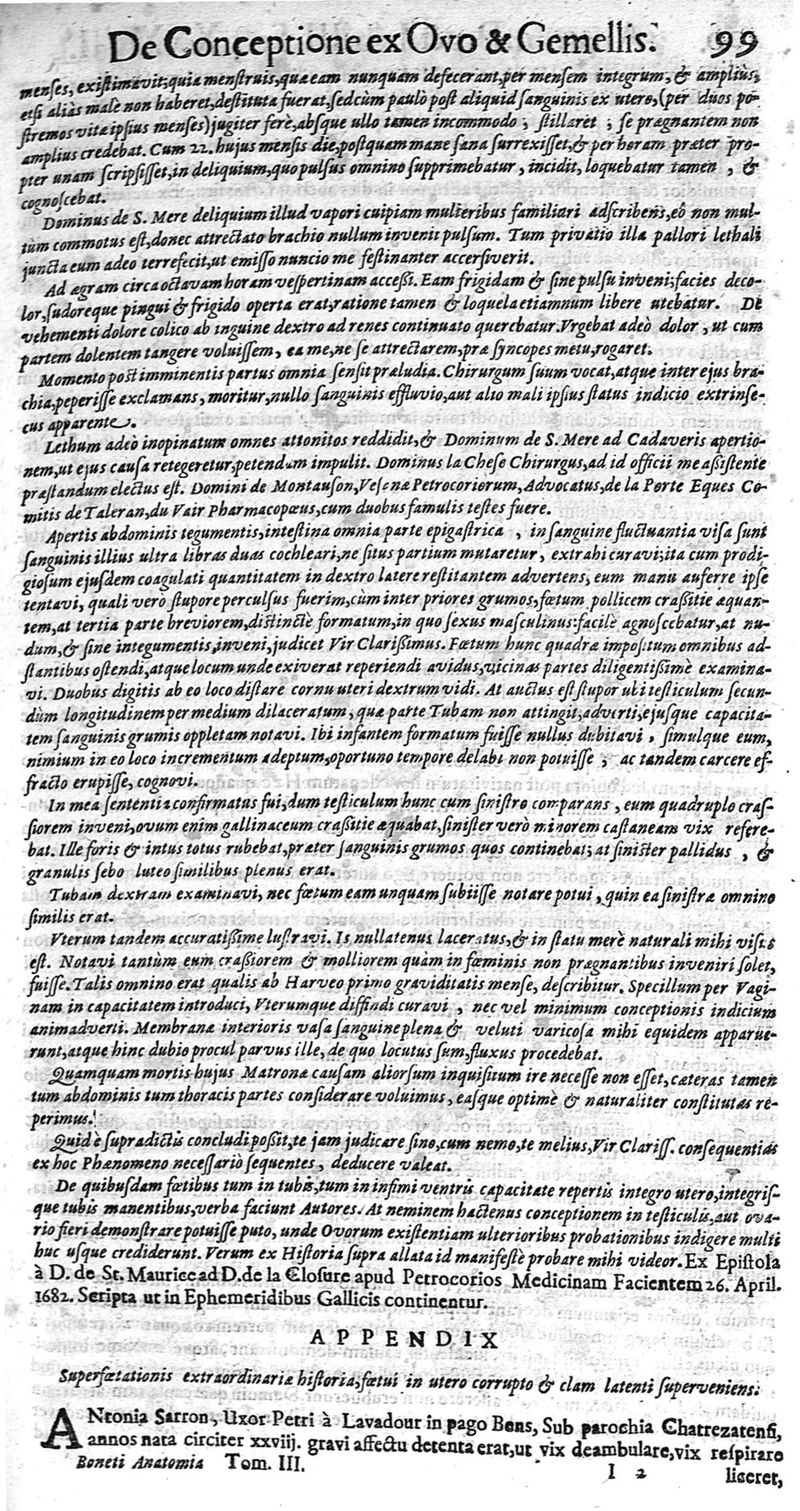 De Conceptione ex Ovo & Gemellis. 99
menses, existimavit; quia menstruis, quæ eam nunquam defecerant, per mensem integrum, & ampliùs,
etsi aliàs male non haberet, destituta fuerat, sed cùm paulò post aliquid sanguinis ex utero, (per duos po-
stremos vitæ ipsius menses) jugiter ferè, absque ullo tamen incommodo, stillaret, se prægnantem non
amplius credebat. Cum 22. hujus mensis die, postquam mane sana surrexisset, & per horam præter pro-
pter unam scripsisset, in deliquium, quo pulsus omnino supprimebatur, incidit, loquebatur tamen, &
cognoscebat.
Dominus de S. Mere deliquium illud vapori cuipiam mulieribus familiari adscribens, eò non mul-
tùm commotus est, donec attrectato brachio nullum invenit pulsum. Tum privatio illa pallori lethali
juncta eum adeo terrefecit, ut emisso nuncio me festinanter accersiverit.
Ad ægram circa octavam horam vespertinam accessi. Eam frigidam & sine pulsu inveni; facies deco-
lor, sudoreque pingui & frigido operta erat, ratione tamen & loquela etiamnum libere utebatur. De
vehementi dolore colico ab inguine dextro ad renes continuato querebatur. Vrgebat adeò dolor, ut cum
partem dolentem tangere voluissem, ea me, ne se attrectarem, præ syncopes metu, rogaret.
Momento post imminentis partus omnia sensit præludia. Chirurgum suum vocat, atque inter ejus bra-
chia, peperisse exclamans, moritur, nullo sanguinis effluvio, aut alio mali ipsius status indicio extrinse-
cus apparente.
Lethum adeò inopinatum omnes attonitos reddidit, & Dominum de S. Mere ad Cadaveris apertio-
nem, ut ejus causa retegeretur, petendam impulit. Dominus la Chese Chirurgus, ad id officii me assistente
præstandum electus est. Domini de Montauson, Vesenæ Petrocoriorum, Advocatus, de la Porte Eques Co-
mitis de Taleran, du Vair Pharmacopæus, cum duobus famulis testes fuere.
Apertis abdominis tegumentis, intestina omnia parte epigastrica, in sanguine fluctuantia visa sunt
sanguinis illius ultra libras duas cochleari, ne situs partium mutaretur, extrahi curavi; ita cum prodi-
giosum ejusdem coagulati quantitatem in dextro latere restitantem advertens, eum manu auferre ipse
tentavi, quali verò stupore perculsus fuerim, cùm inter priores grumos, fœtum pollicem crassitie æquan-
tem, at tertia parte breviorem, distinctè formatum, in quo sexus masculinus facilè agnoscebatur, at nu-
dum, & sine integumentis, inveni, judicet Vir Clarissimus. Fœtum hunc quadræ impositum omnibus ad-
stantibus ostendi, atque locum unde exiverat reperiendi avidus, vicinas partes diligentissimè examina-
vi. Duobus digitis ab eo loco distare cornu uteri dextrum vidi. At auctus est stupor ubi testiculum secun-
dùm longitudinem per medium dilaceratum, quæ parte Tubam non attingit, adverti, ejusque capacita-
tem sanguinis grumis oppletam notavi. Ibi infantem formatum fuisse nullus dubitavi, simulque eum,
nimium in eo loco incrementum adeptum, oportuno tempore delabi non potuisse, ac tandem carcere ef-
fracto erupisse, cognovi.
In mea sententia confirmatus fui, dum testiculum hunc cum sinistro comparans, eum quadruplo cras-
siorem inveni, ovum enim gallinaceum crassitie æquabat, sinister verò minorem castaneam vix refere-
bat. Ille foris & intus totus rubebat, præter sanguinis grumos quos continebat; at sinister pallidus, &
granulis sebo luteo similibus plenus erat.
Tubam dextram examinavi, nec fœtum eam unquam subiisse notare potui, quin ea sinistræ omnino
similis erat.
Vterum tandem accuratissime lustravi. Is nullatenus laceratus, & in statu merè naturali mihi visus
est. Notavi tantùm eum crassiorem & molliorem quàm in fœminis non prægnantibus inveniri solet,
fuisse. Talis omnino erat qualis ab Harveo primo graviditatis mense, describitur. Specillum per Vagi-
nam in capacitatem introduci, Vterumque diffindi curavi, nec vel minimum conceptionis indicium
animadverti. Membranæ interioris vasa sanguine plena & veluti varicosa mihi equidem apparue-
runt, atque hinc dubio procul parvus ille, de quo locutus sum, fluxus procedebat.
Quamquam mortis hujus Matronæ causam aliorsum inquisitum ire necesse non esset, cæteras tamen
tum abdominis tum thoracis partes considerare voluimus, easque optimè & naturaliter constitutas re-
perimus.
Quid è supradictis concludi possit, te jam judicare sino, cum nemo, te melius, Vir Clariss. consequentias
ex hoc Phænomeno necessariò sequentes, deducere valeat.
De quibusdam fœtibus tum in tubis, tum in infimi ventris capacitate repertis integro utero, integris-
que tubis manentibus, verba faciunt Autores. At neminem hactenus conceptionem in testiculis, aut ova-
rio fieri demonstrare potuisse puto, unde Ovorum existentiam ulterioribus probationibus indigere multi
huc usque crediderunt. Verum ex Historia supra allata id manifestè probare mihi videor. Ex Epistola
à D. de St. Maurice ad D. de la Closure apud Petrocorios Medicinam Facientem 26. April.
1682. Scripta ut in Ephemeridibus Gallicis continentur.
APPENDIX
Superfœtationis extraordinariæ historia, fœtui in utero corrupto & clam latenti superveniens.
ANtonia Sarron, Uxor Petri à Lavadour in pago Bens, Sub parochia Chatrezatensi,
annos nata circiter xxviij. gravi affectu detenta erat, ut vix deambulare, vix respirare
Boneti Anatomia Tom. III. I 2 liceret,